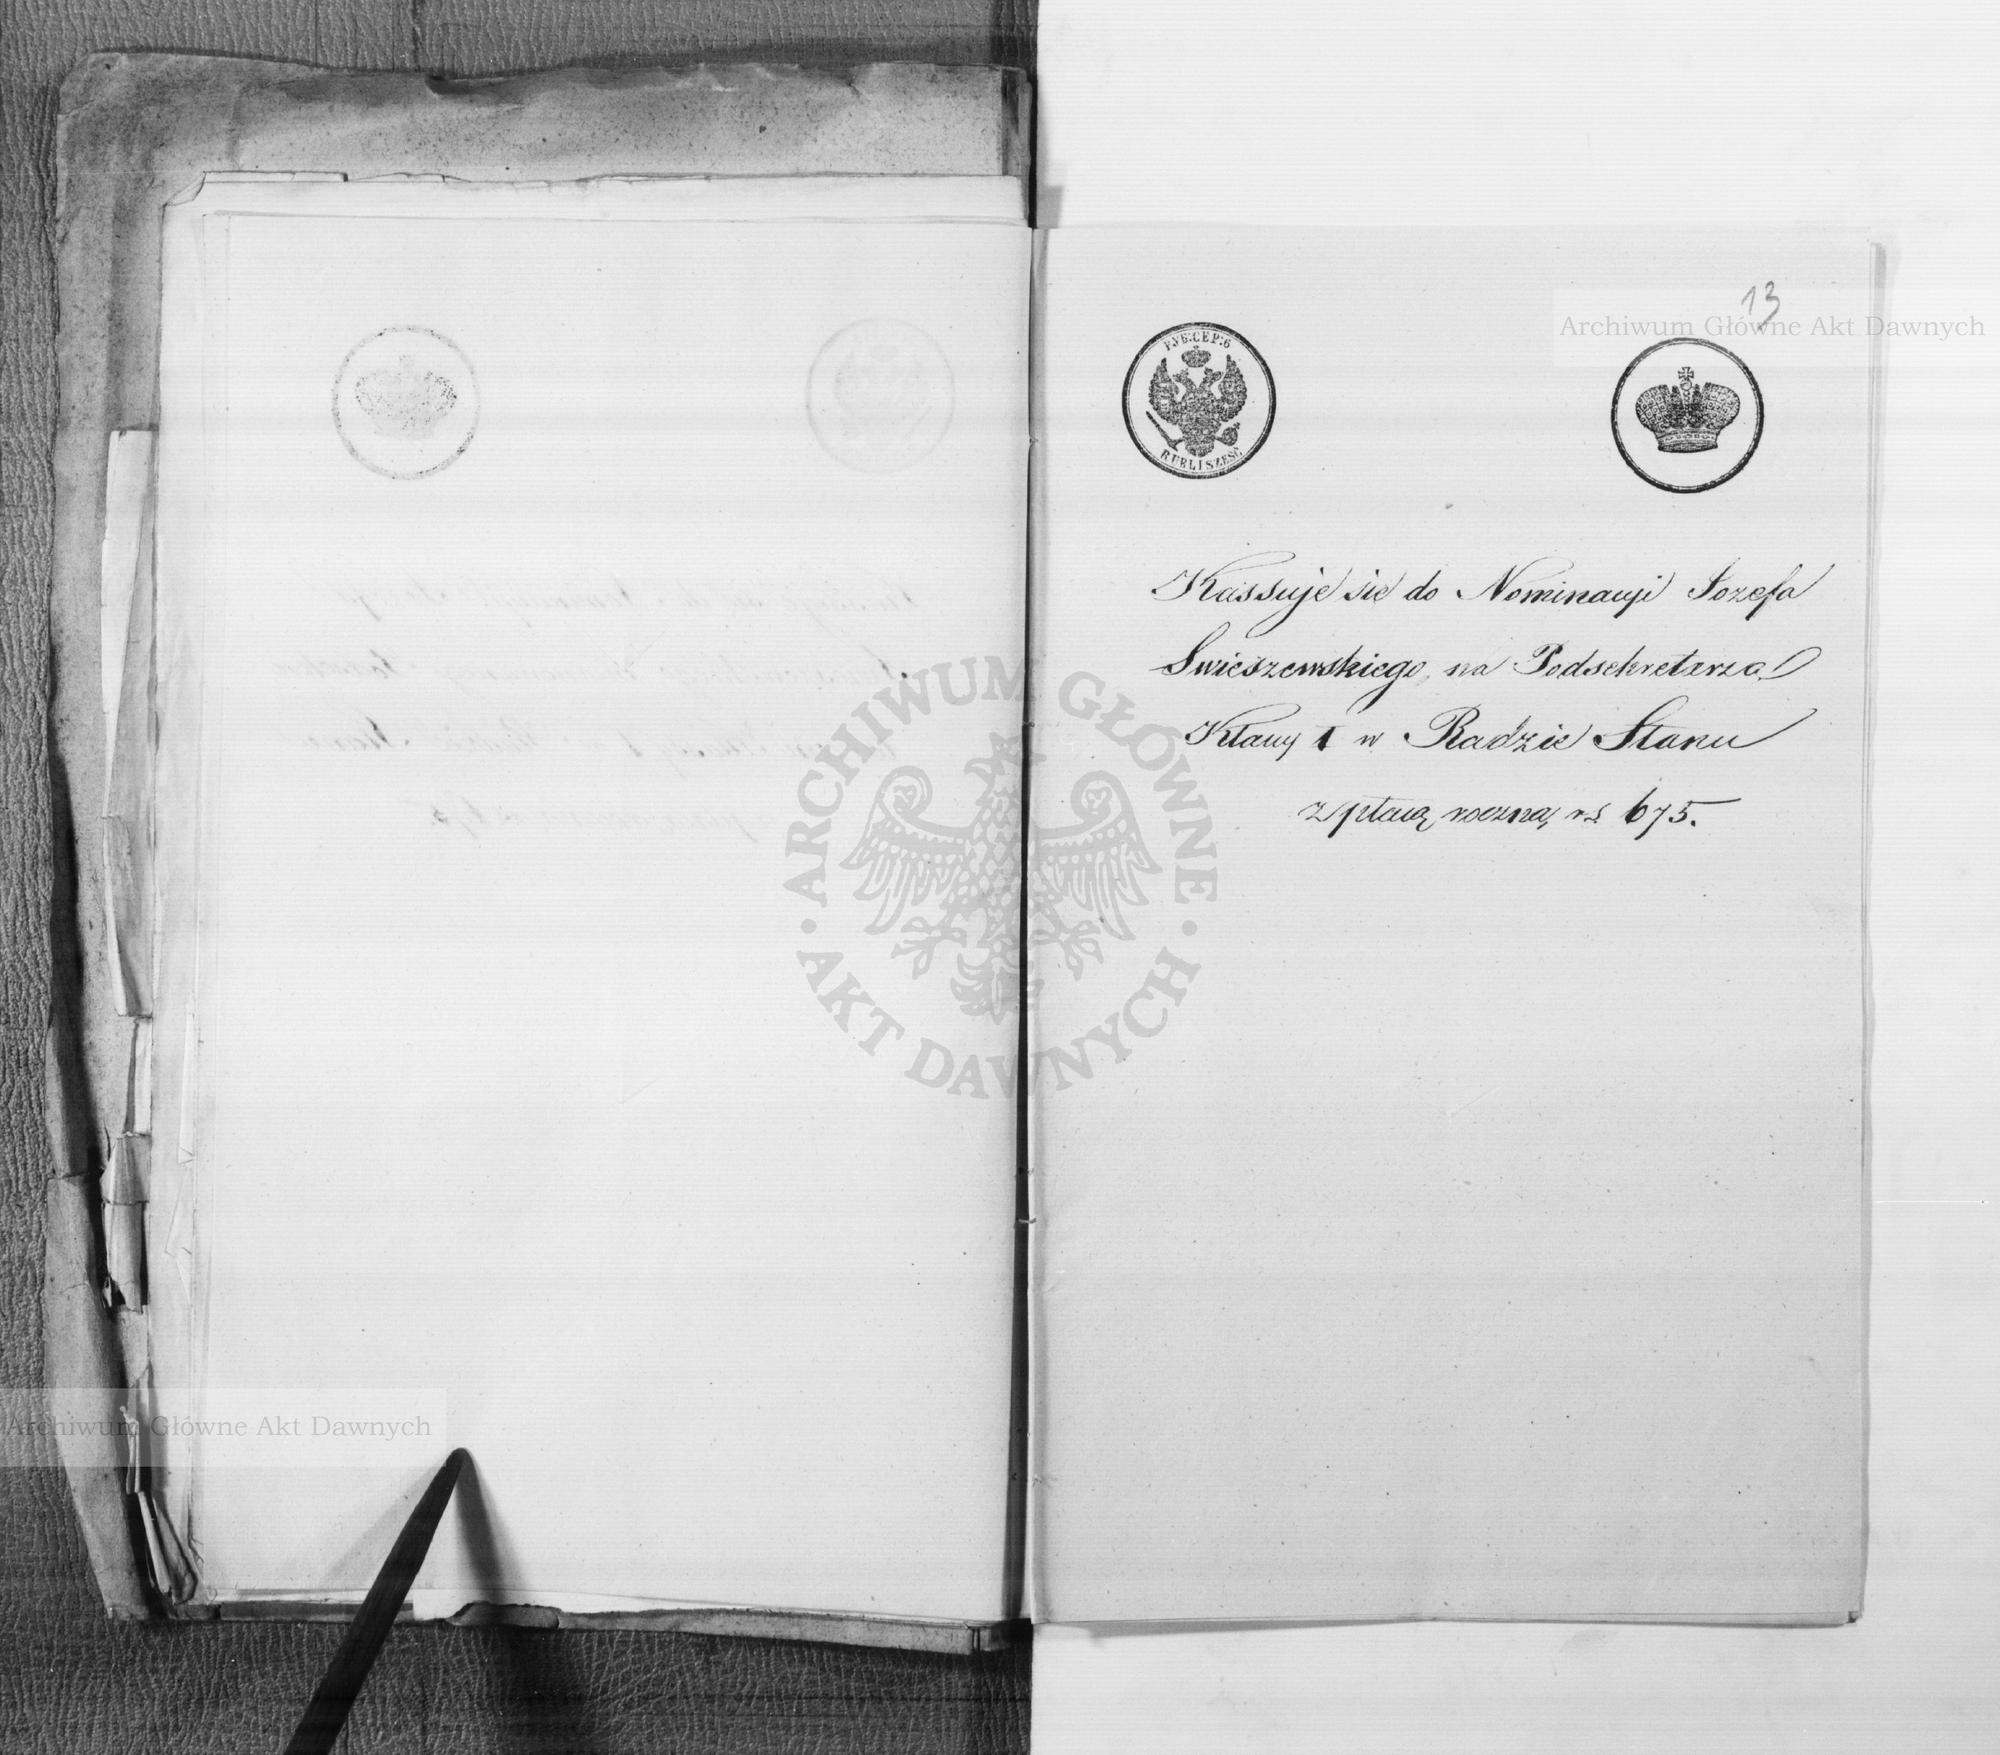 13
РУБ:СЕР:6
RUBLI SZESĆ
Kassuje sie do Nominacyi Jozefa
Swieszewskiego, na Podsekretarza
Klassy 1 w Radzie Stanu
z płacą roczną rs 675.
Archiwum Główne Akt Dawnych
ARCHIWUM GŁÓWNE
AKT DAWNYCH
Archiwum Główne Akt Dawnych